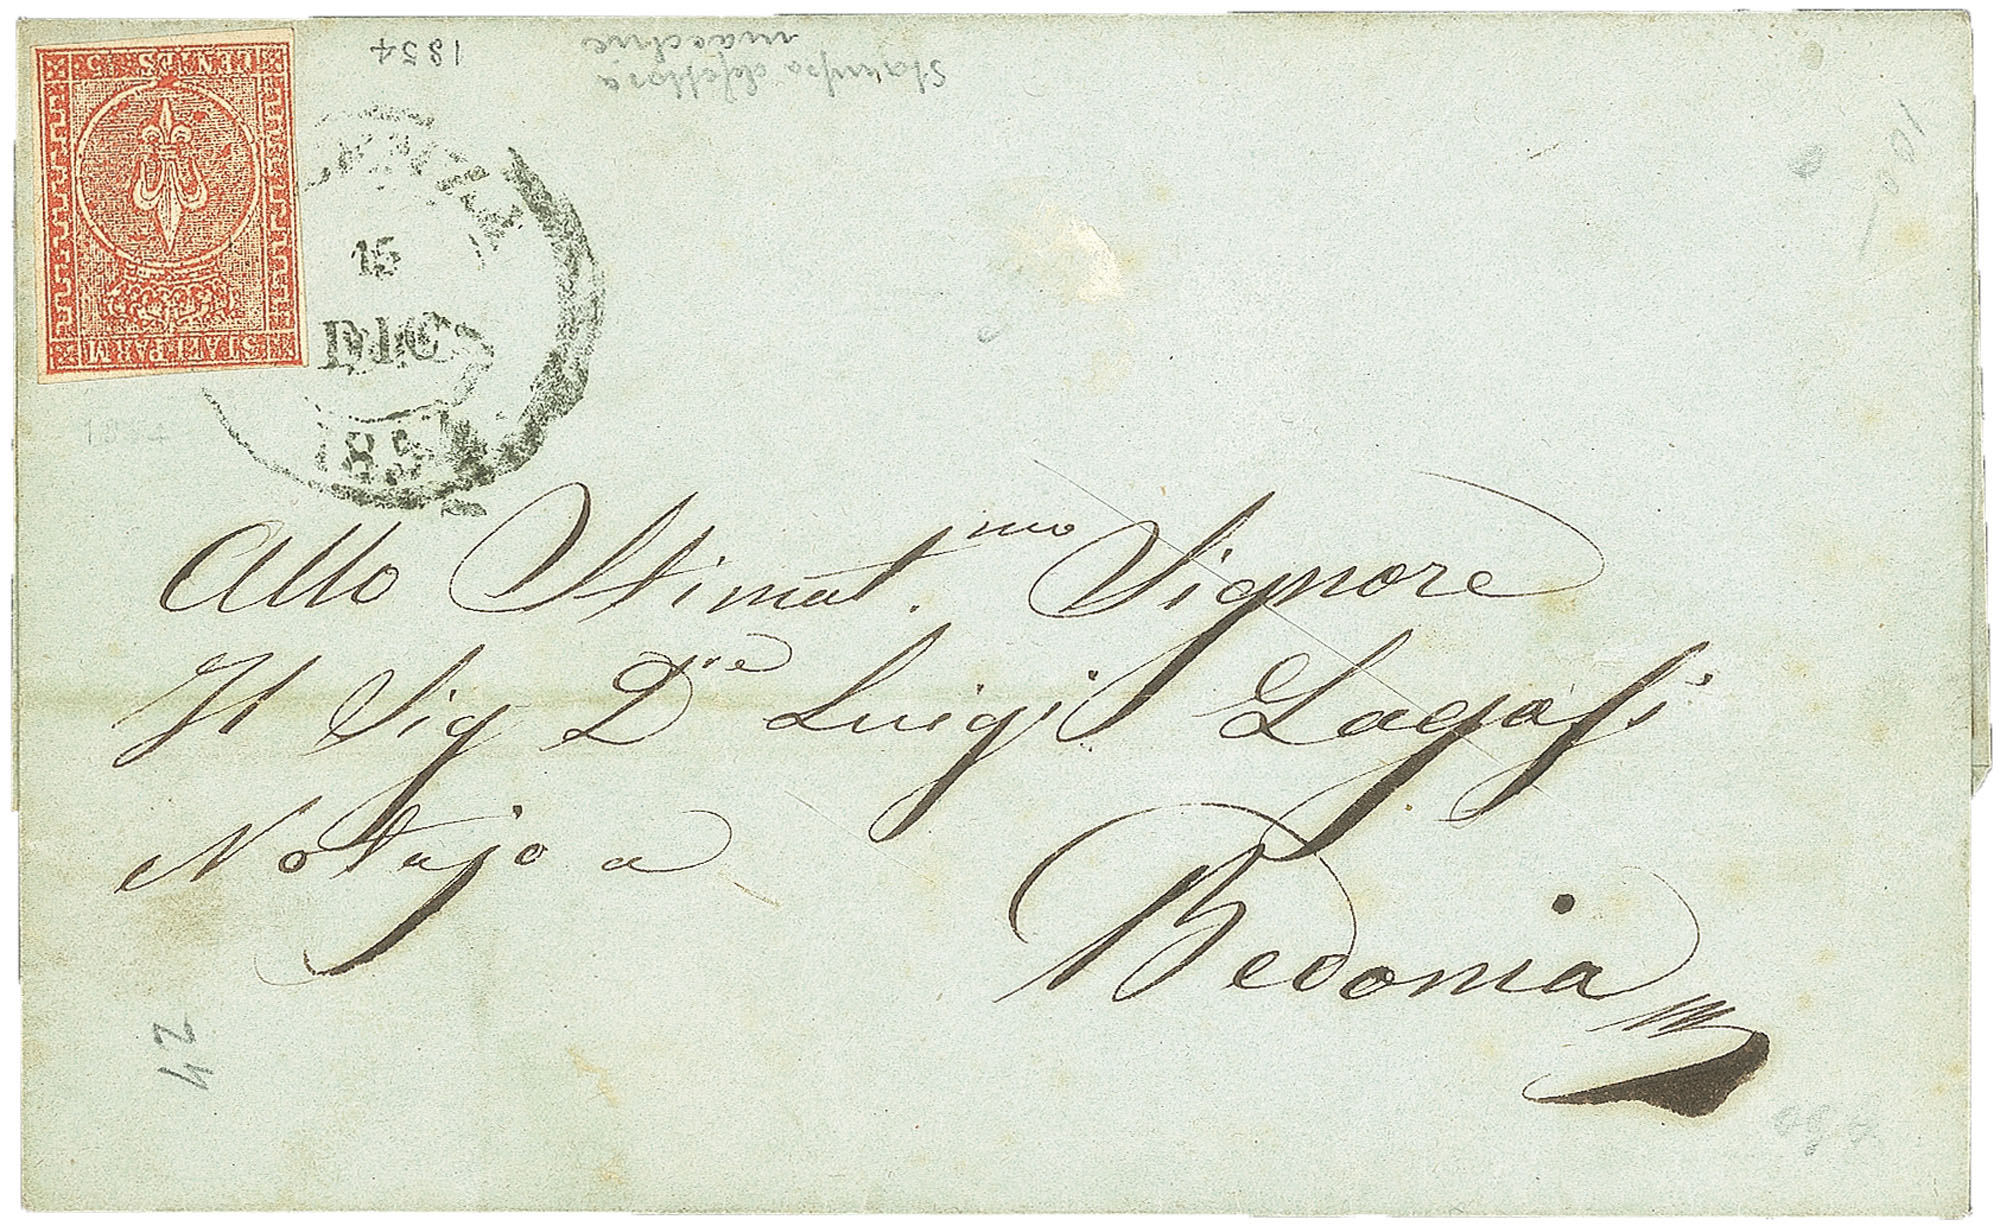 1854
Stampa difettosa
macchie
CENTES 15
STATI PARM
15
DIC
185
Allo Stimat.mo Signore
Il Sig Dre Luigi Lagasi
Notajo a
Bedonia
42